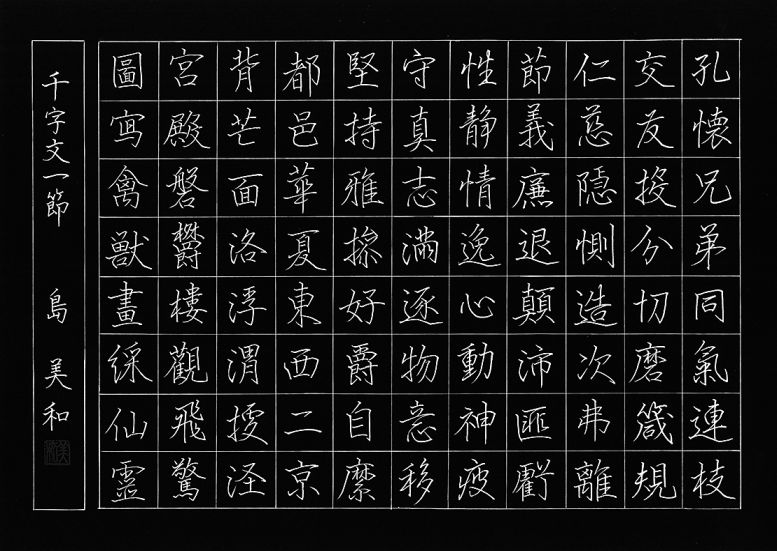 孔懐兄弟同氣連枝
交友投分切磨箴規
仁慈隠惻造次弗離
節義廉退顛沛匪虧
性静情逸心動神疲
守真志満逐物意移
堅持雅操好爵自縻
都邑華夏東西二京
背芒面洛浮渭據涇
宮殿磐欝樓觀飛驚
圖写禽獣畫綵仙靈
千字文一節 島 美和